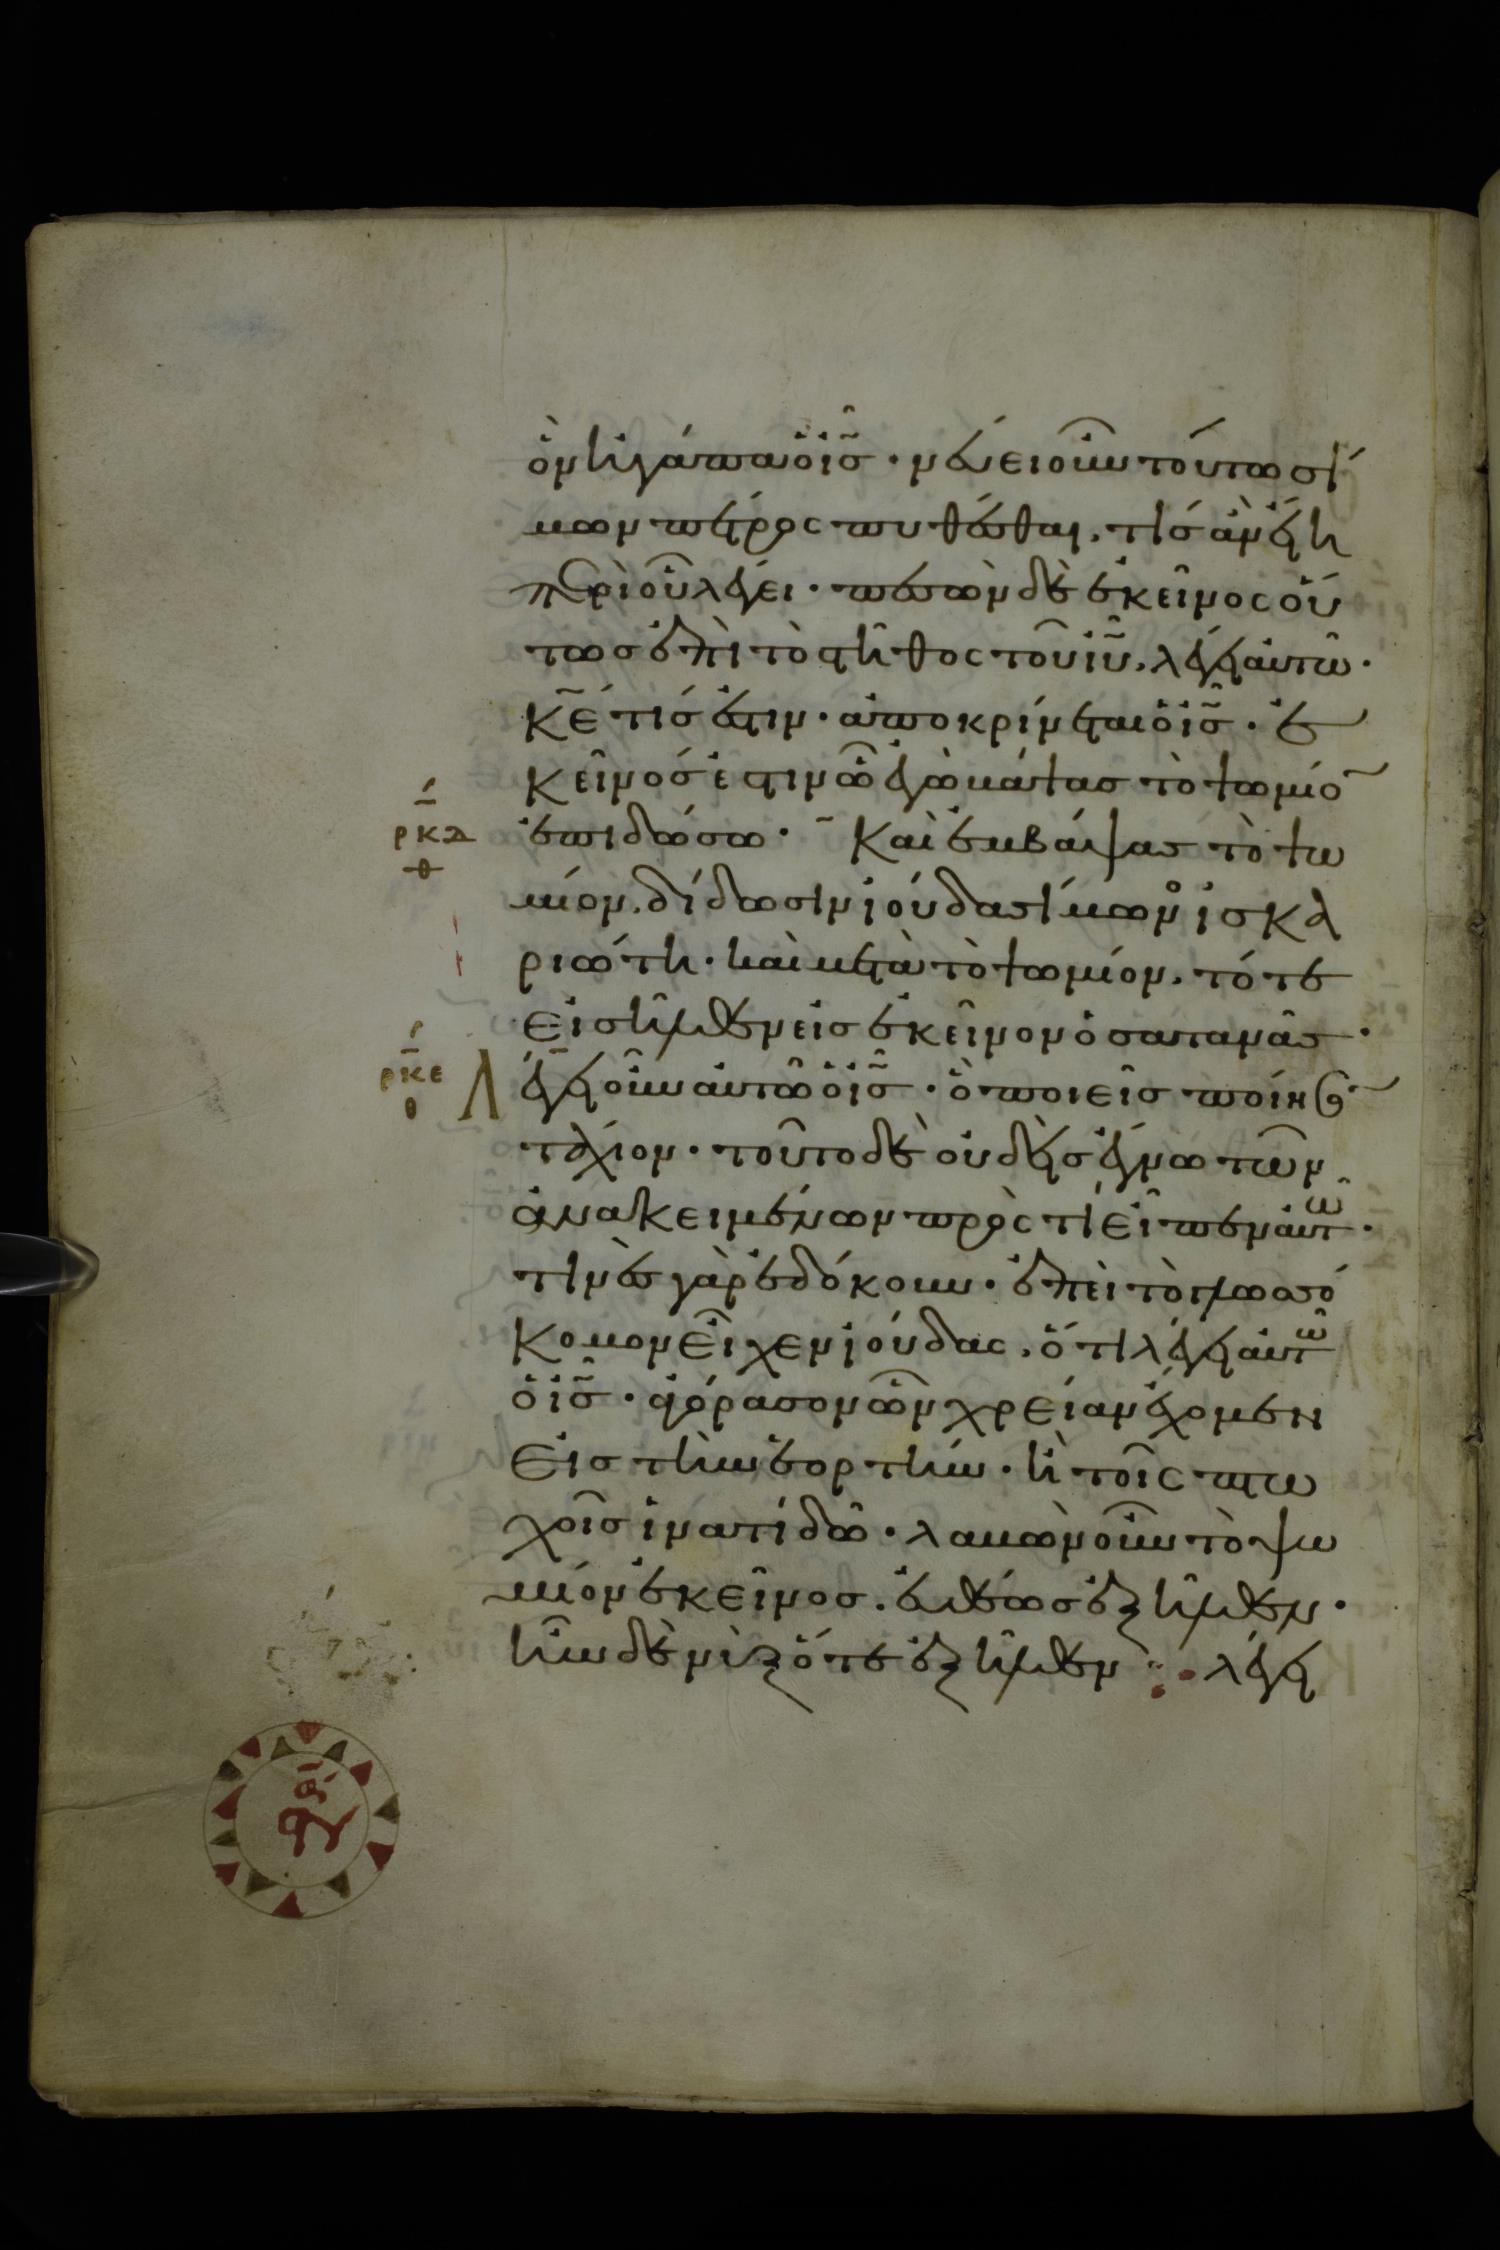 ὃν ἠγάπα ὁ ις̃· νεύει οὖν τούτω σί
μων πέτρος πυθέσθαι, τίς ἂν εἴη
περὶ οὗ λέγει· πεσὼν δὲ ἐκεῖνος οὕ
τως ἐπὶ τὸ στῆθος τοῦ ιυ̃, λέγει αὐτῶ·
κε̃ τίς ἐστιν· ἀποκρίνεται ὁ ις̃· ἐ
κεῖνός ἐστιν ὧ ἐγὼ βάψας τὸ ψωμίο̅
ρκδ
θ
ἐπιδώσω· Καὶ ἐμβάψας τὸ ψω
μίον, δίδωσιν ἰούδα σίμωνος ἰσκα
ριώτη· καὶ μετὰ τὸ ψωμίον, τότε
εἰσῆλθεν εἰς ἐκεῖνον ὁ σατανᾶς·
ρκε
θ
Λέγει οὖν αὐτῶ ὁ ις̃· ὃ ποιεῖς ποίησο̅
τάχιον· τοῦτο δὲ οὐδεὶς ἔγνω τῶν
ἀνακειμένων πρὸς τί εἶπεν αὐτῶ·
τινὲς γὰρ ἐδόκουν· ἐπεὶ τὸ γλωσσό
κομον εἶχεν ἰούδας, ὅτι λέγει αὐτῶ
ὁ ις̃· ἀγόρασον ὧν χρείαν ἔχομεν
εἰς τὴν ἑορτήν· ἢ τοῖς πτω
χοῖς ἵνα τί δῶ· λαβὼν οὖν τὸ ψω
μίον ἐκεῖνος. εὐθέως ἐξῆλθεν·
ἦν δὲ νὺξ ὅτε ἐξῆλθεν ⁘ λέγει